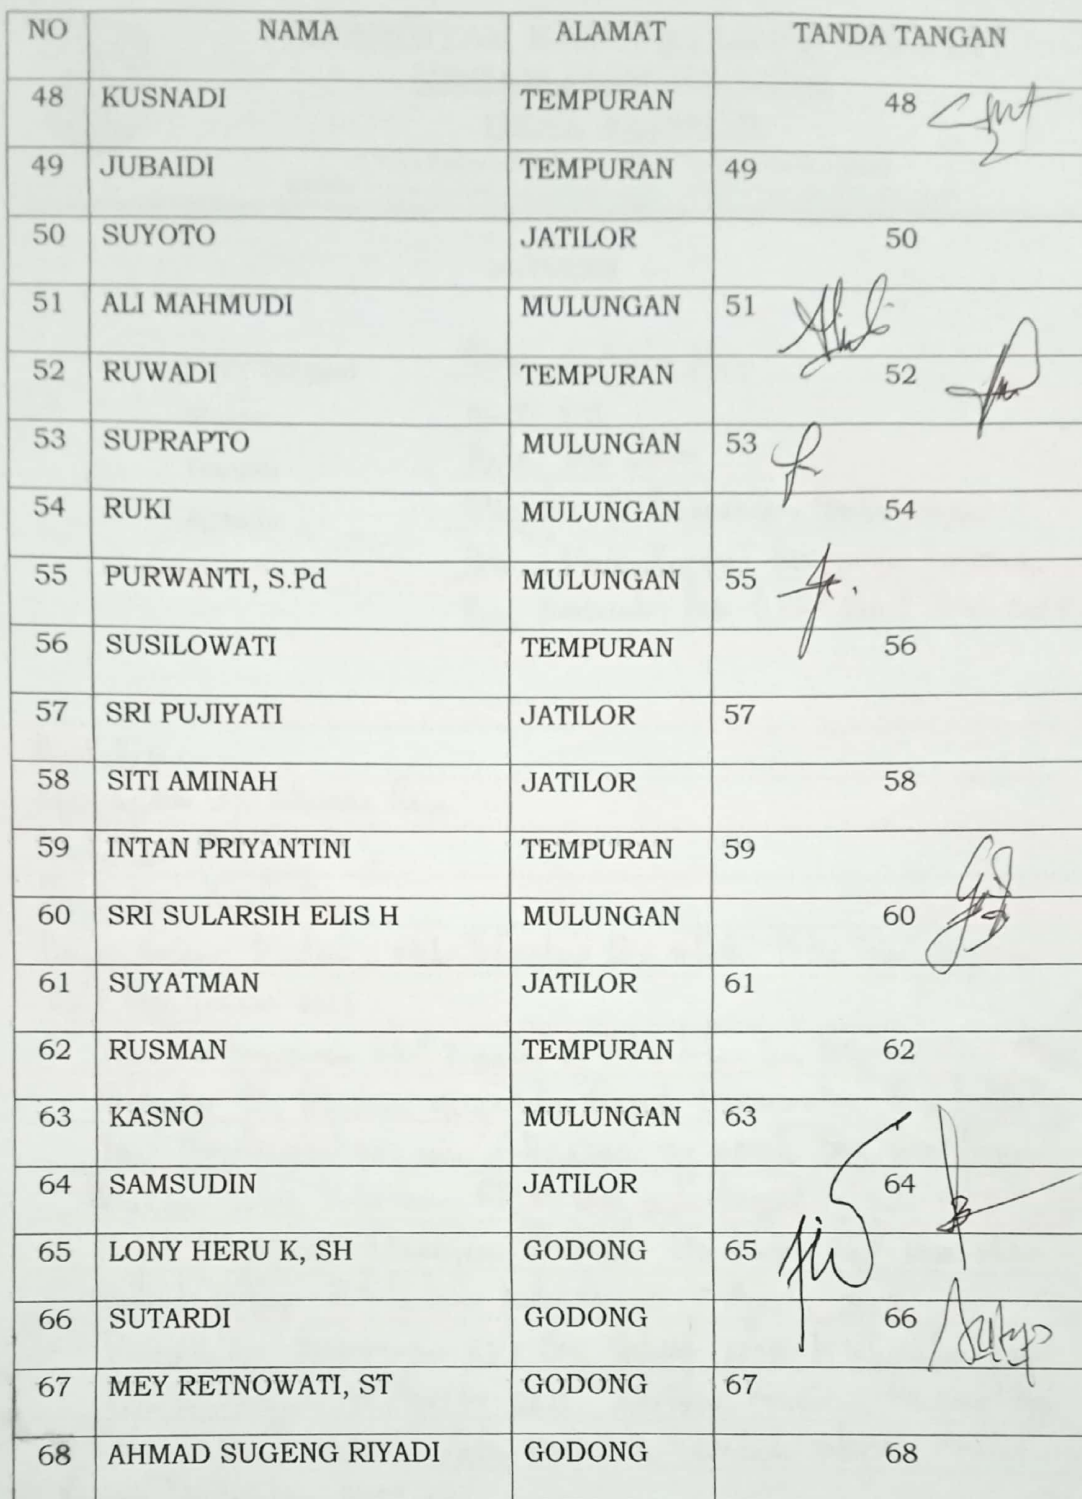 NO NAMA ALAMAT TANDA TANGAN
48 KUSNADI TEMPURAN 48
49 JUBAIDI TEMPURAN 49
50 SUYOTO JATILOR 50
51 ALI MAHMUDI MULUNGAN 51
52 RUWADI TEMPURAN 52
53 SUPRAPTO MULUNGAN 53
54 RUKI MULUNGAN 54
55 PURWANTI, S.Pd MULUNGAN 55
56 SUSILOWATI TEMPURAN 56
57 SRI PUJIYATI JATILOR 57
58 SITI AMINAH JATILOR 58
59 INTAN PRIYANTINI TEMPURAN 59
60 SRI SULARSIH ELIS H MULUNGAN 60
61 SUYATMAN JATILOR 61
62 RUSMAN TEMPURAN 62
63 KASNO MULUNGAN 63
64 SAMSUDIN JATILOR 64
65 LONY HERU K, SH GODONG 65
66 SUTARDI GODONG 66
67 MEY RETNOWATI, ST GODONG 67
68 AHMAD SUGENG RIYADI GODONG 68